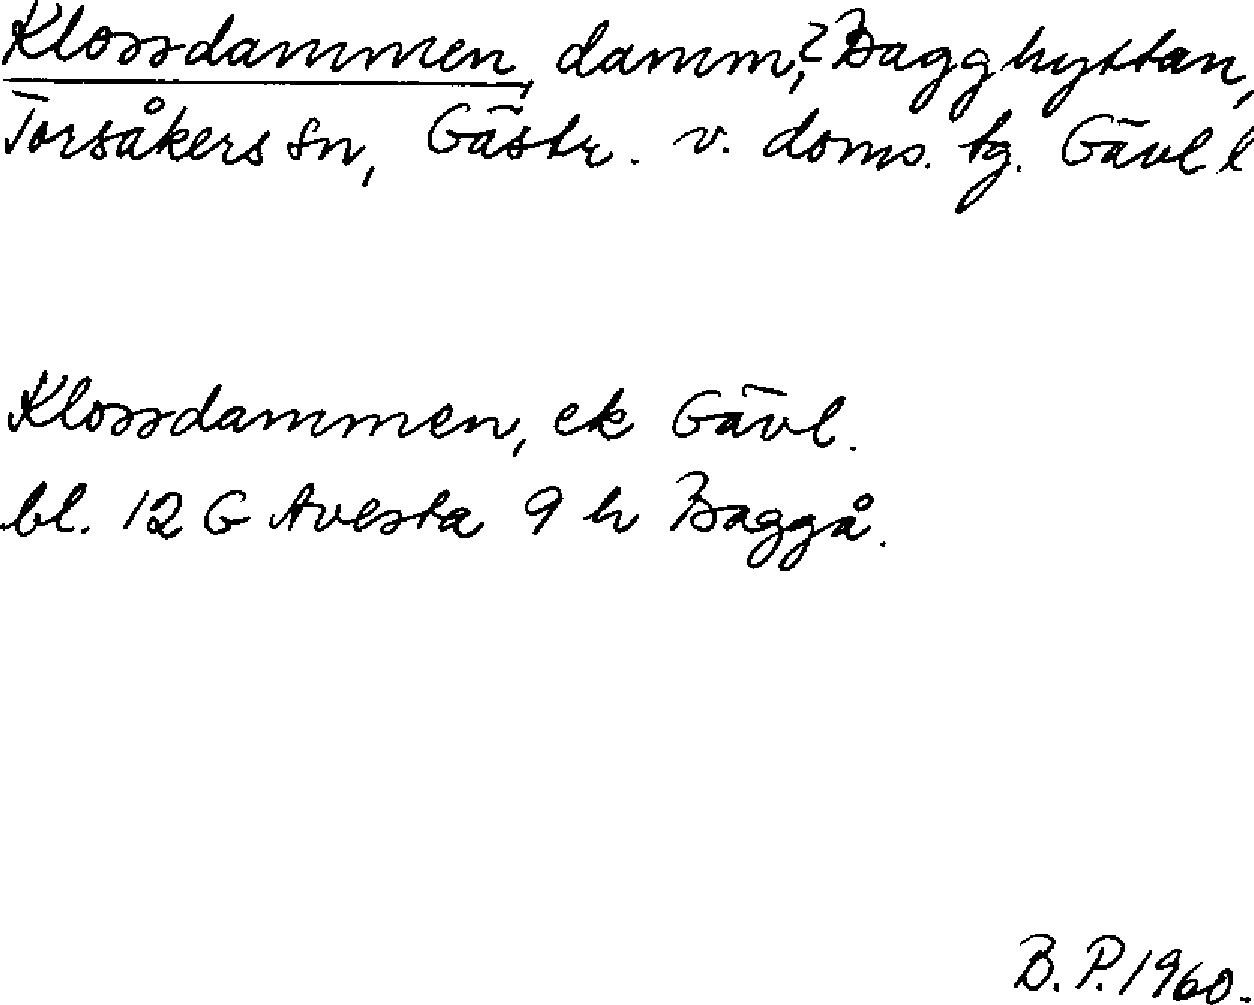 Klossdammen, damm,? Bagghyttan,
Torsåkers sn, Gästr. v. doms. tg. Gävl l
Klossdammen, ek Gävl.
bl. 12 G Avesta 9 h Baggå.
B. P. 1960.